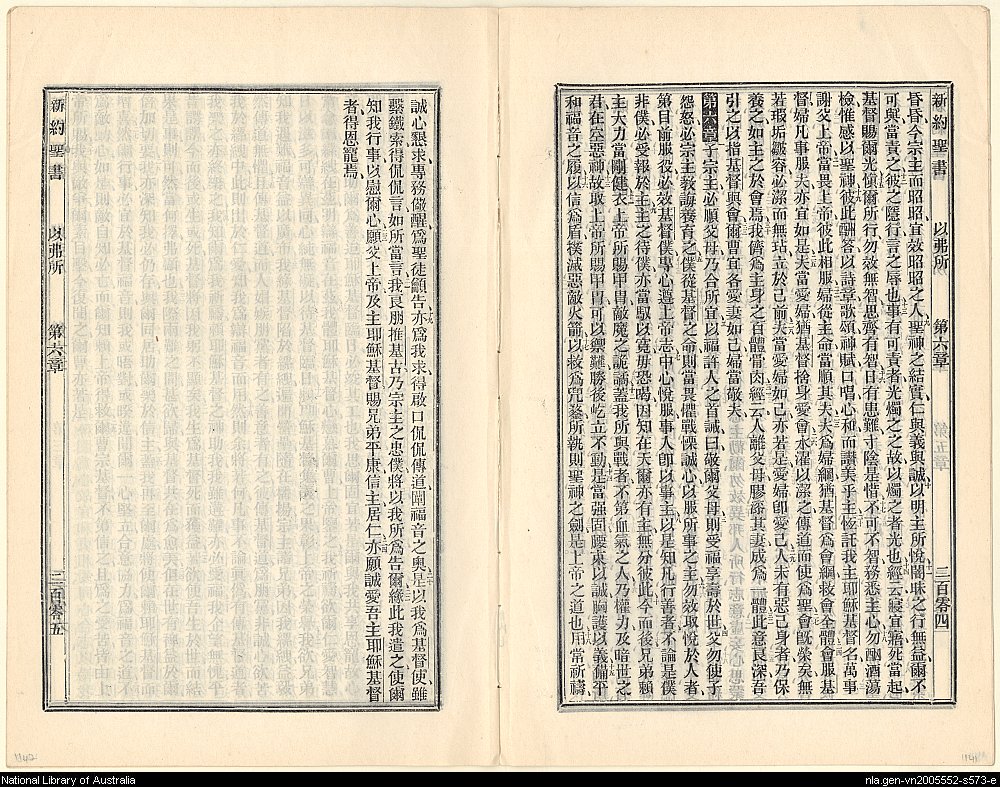 新約聖書 以弗所 第六章 三百零四
昏昏今宗主而昭昭宜效昭昭之人聖神之結實仁與義與誠以明主所悅闇昧之行無益爾不
可與當責之彼之隱行言之辱也事有可責者光燭之之故以燭之者光也經云寢宜寤死當起
基督賜爾光愼爾所行勿效無智思齊有智日有患難寸陰是惜不可不智務悉主心勿酗酒蕩
檢惟感以聖神彼此酬答以詩章歌頌神賦口唱心和而讚美乎主恆託我主耶穌基督名萬事
謝父上帝當畏上帝彼此相服婦從主命當順其夫夫爲婦綱猶基督爲會綱救會全體會服基
督婦凡事服夫亦宜如是夫當愛婦猶基督捨身愛會水濯以潔之傳道而使爲聖會旣榮矣無
若瑕垢皺容必潔而無玷立於己前夫當愛婦如己亦若是愛婦卽愛己人未有惡己身者乃保
養之如主之於會焉我儕爲主身之百體骨肉經云人離父母膠漆其妻成爲一體此意良深吾
引之以指基督與會爾曹宜各愛妻如己婦當敬夫
第六章子宗主必順父母乃合所宜以福許人之首誡曰敬爾父母則受福享壽於世父勿使子
怨怒必宗主教誨養育之僕從基督之命則當畏懼戰慄誠心以服所事之主勿效取悅於人者
第目前服役必效基督僕專心遵上帝志中心悅服事人卽以事主以是知凡行善者不論是僕
非僕必受報於主主之待僕亦當馭以寛毋恐喝因知在天爾亦有主無分彼此今而後兄弟賴
主大力當剛健衣上帝所賜甲冑敵魔之詭譎蓋我所與戰者不第血氣之人乃權力及暗世之
君在空惡神故取上帝所賜甲冑可以禦難勝後屹立不動是當强固腰束以誠胸護以義備平
和福音之履以信爲盾樸滅惡敵火箭以救爲兜鍪所執則聖神之劍是上帝之道也用常祈禱
誠心懇求專務儆醒爲聖徒籲告亦爲我求得啟口侃侃傳道闡福音之奧是以我爲基督使雖
繫鐵索得侃侃言如所當言我良朋推基古乃宗主之忠僕將以我所爲告爾緣此我遣之使爾
知我行事以慰爾心願父上帝及主耶穌基督賜兄弟平康信主居仁亦願誠愛吾主耶穌基督
者得恩寵焉
新約聖書 以弗所 第六章 三百零五
National Library of Australia
nla.gen-vn2005552-s573-e